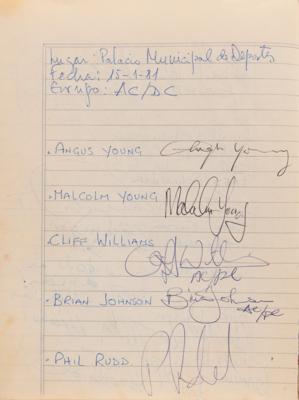 Lugar: Palacio Municipal de Deportes
Fecha: 15-1-81
Grupo: AC/DC
· ANGUS YOUNG Angus Young
· MALCOLM YOUNG Malcolm Young
· CLIFF WILLIAMS
Cliff Williams
AC/DC
· BRIAN JOHNSON Brian Johnson
AC/DC
· PHIL RUDD P Rudd